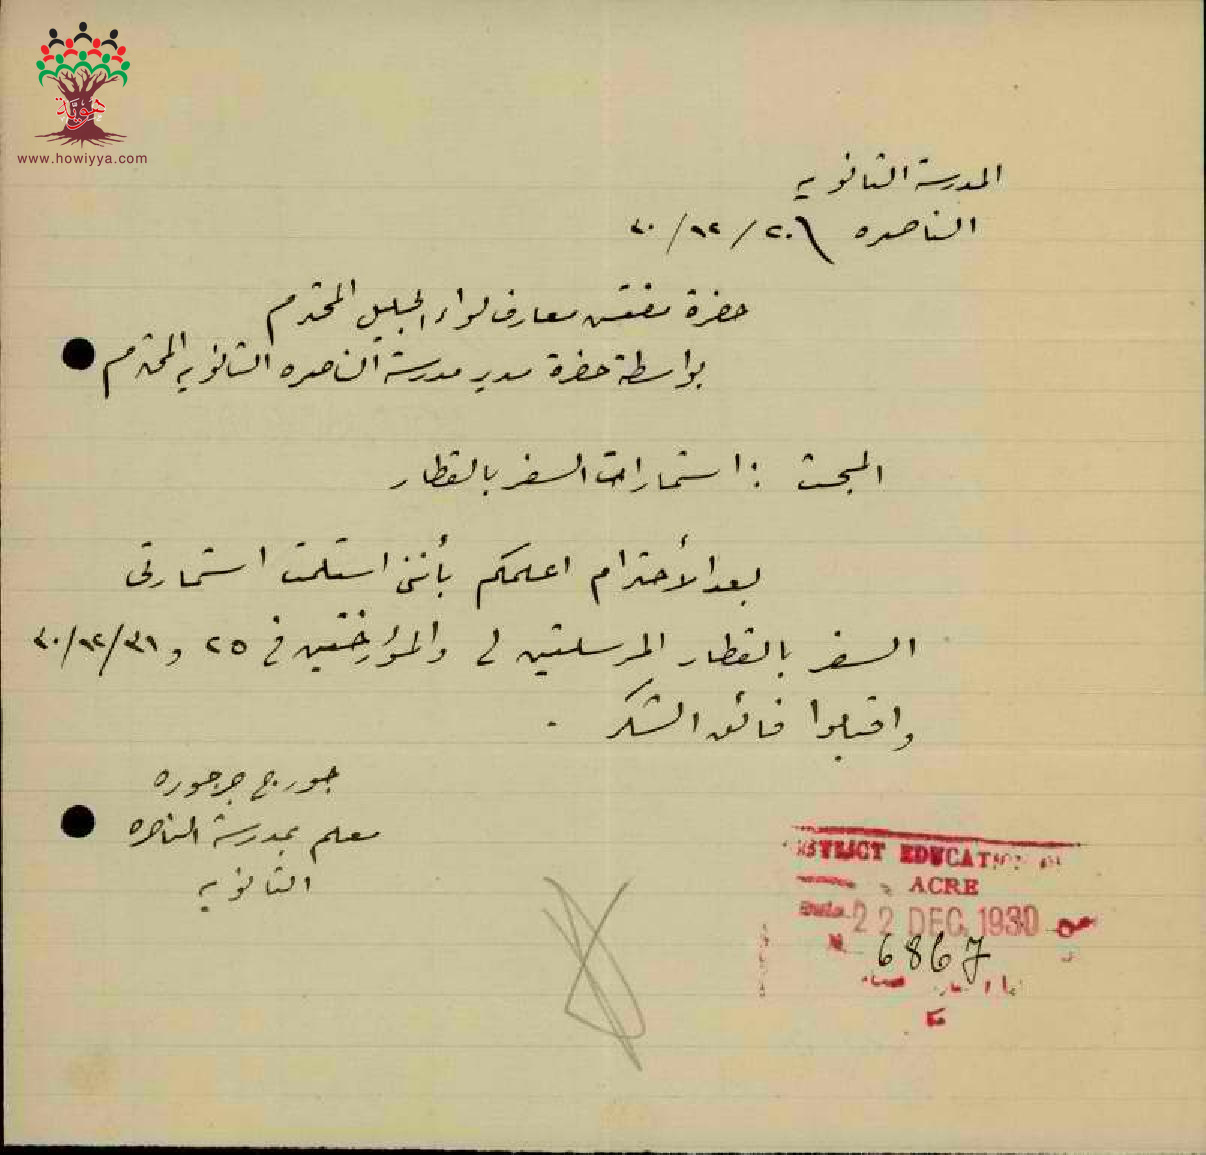 هوية
www.howiyya.com
المدرسة الثانويه
الناصره ٢٠/١٢/٣٠
حضرة مفتش معارف لواء الجليل المحترم
بواسطة حضرة مدير مدرسة الناصره الثانويه المحترم
المبحث : استمارات السفر بالقطار
بعد الأحترام اعلمكم بأنني استلمت استمارتى
السفر بالقطار المرسلتين لي والمؤرختين في ٢٥ و ٣٠/١٢/٣١
واقبلوا فائق الشكر .
جورج جرجوره
معلم بمدرسة الناصره
الثانويه
DISTRICT EDUCATION
ACRE
Date 22 DEC. 1930
N 6867
عكا